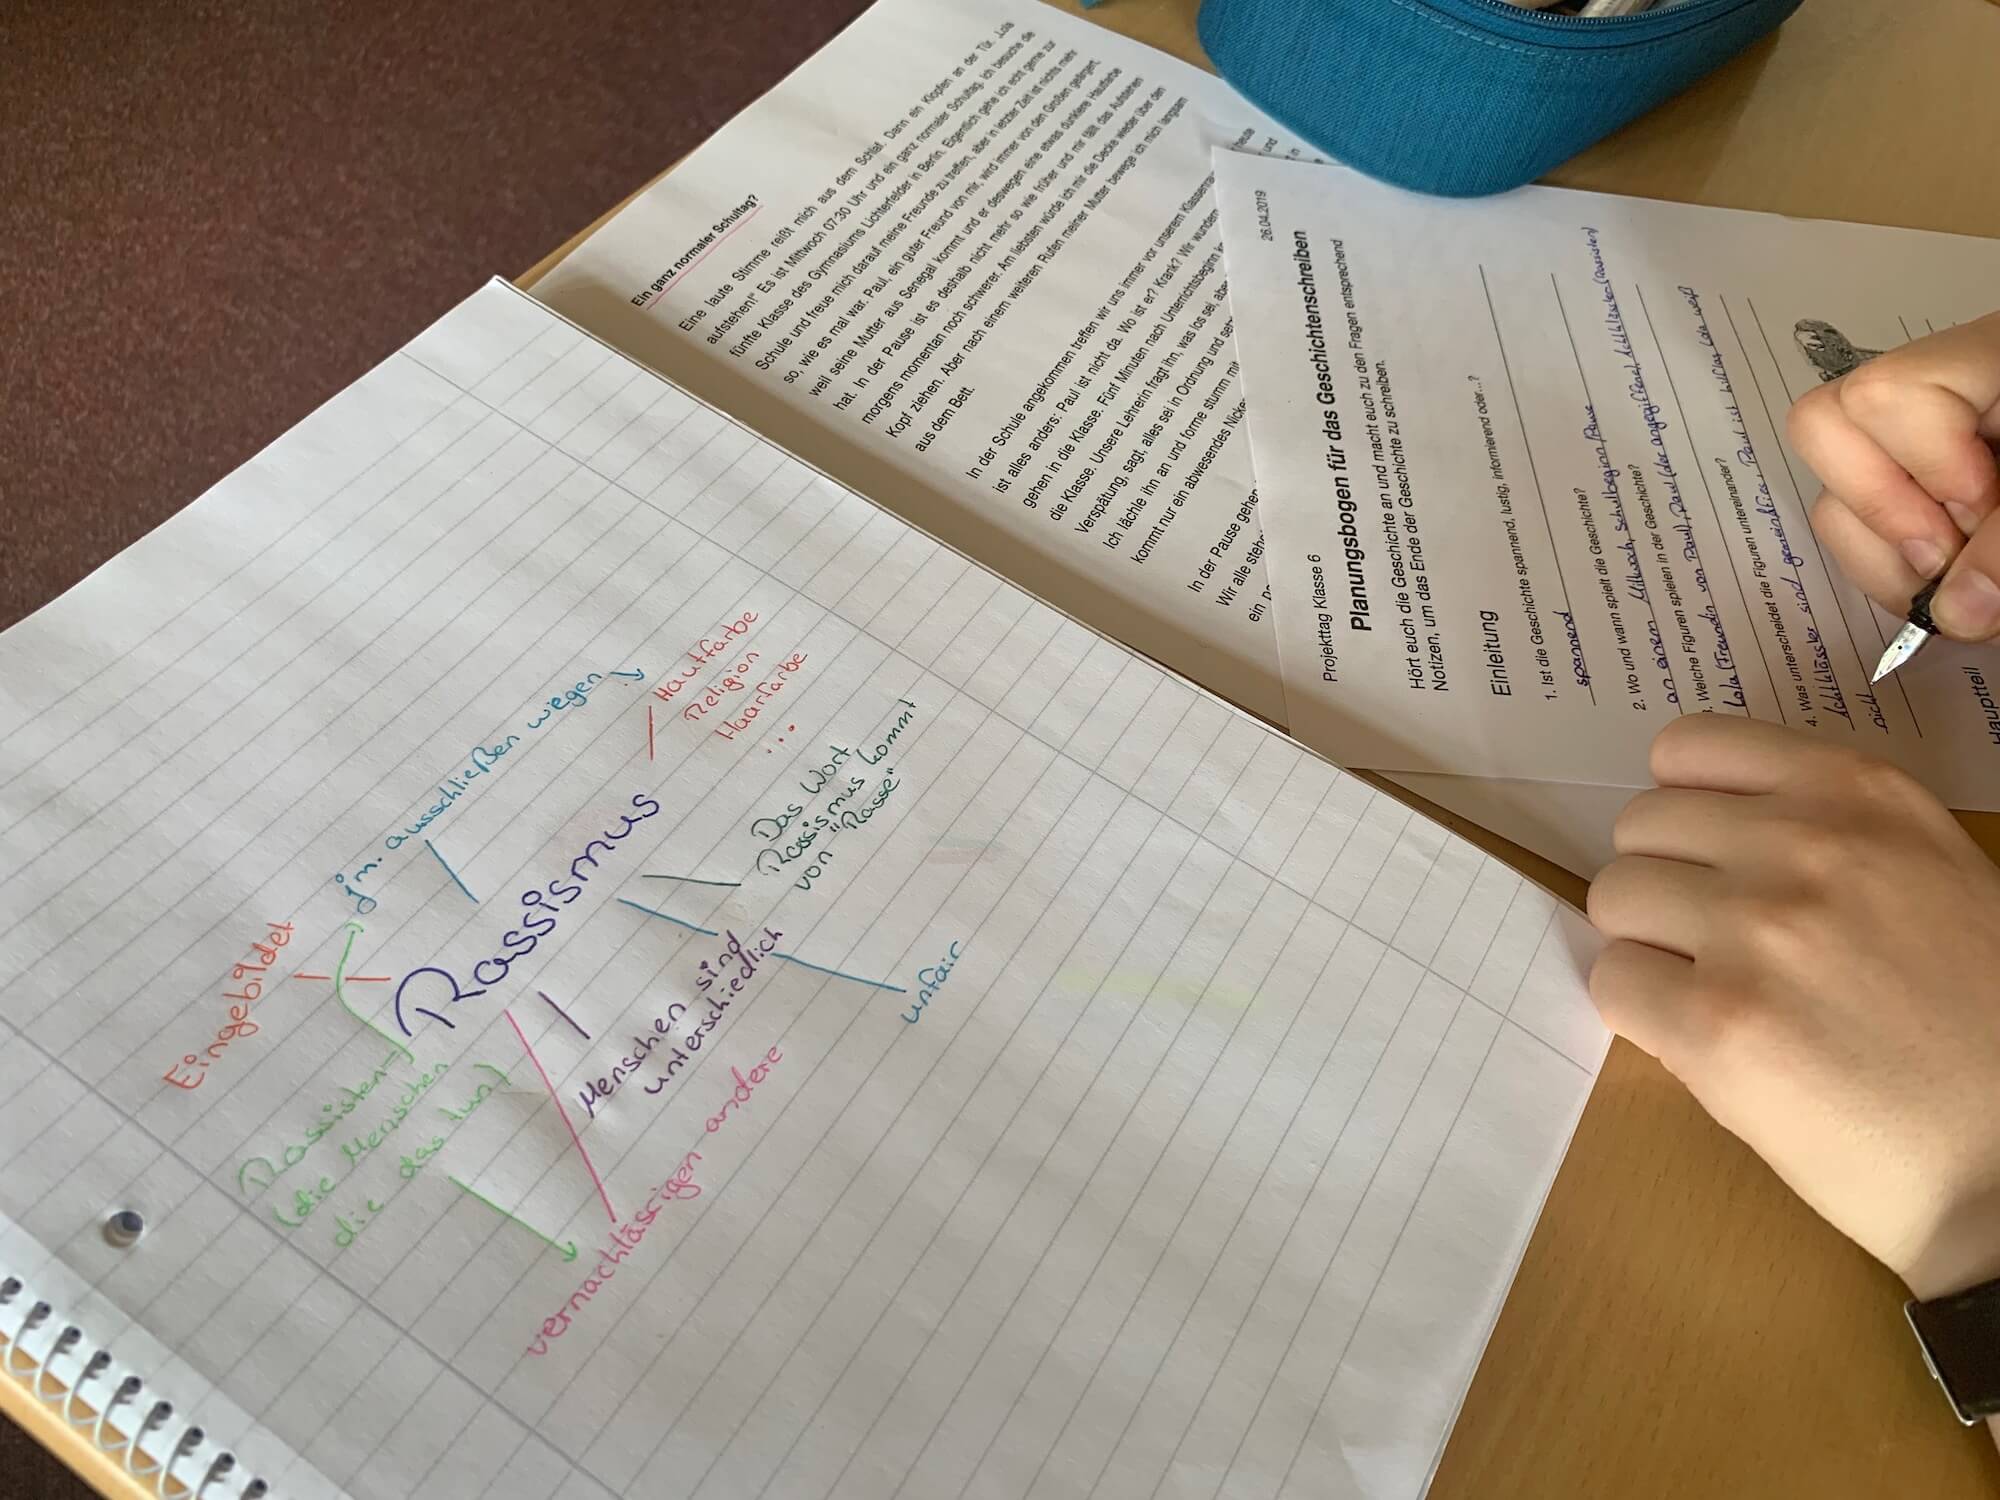 Ein ganz normaler Schultag?
Eine laute Stimme reißt mich aus dem Schlaf. Dann ein Klopfen an der Tür. „Lola
aufstehen!“ Es ist Mittwoch 07:30 Uhr und ein ganz normaler Schultag. Ich besuche die
fünfte Klasse des Gymnasiums Lichterfelder in Berlin. Eigentlich gehe ich echt gerne zur
Schule und freue mich darauf meine Freunde zu treffen, aber in letzter Zeit ist nichts mehr
so, wie es mal war. Paul, ein guter Freund von mir, wird immer von den Großen geärgert,
weil seine Mutter aus Senegal kommt und er deswegen eine etwas dunklere Hautfarbe
hat. In der Pause ist es deshalb nicht mehr so wie früher und mir fällt das Aufstehen
morgens momentan noch schwerer. Am liebsten würde ich mir die Decke wieder über den
Kopf ziehen. Aber nach einem weiteren Rufen meiner Mutter bewege ich mich langsam
aus dem Bett.
In der Schule angekommen treffen wir uns immer vor unserem
ist alles anders: Paul ist nicht da. Wo ist er? Krank? Wir wundern
gehen in die Klasse. Fünf Minuten nach Unterrichtsbeginn
die Klasse. Unsere Lehrerin fragt ihn, was los sei, aber
Verspätung, sagt, alles sei in Ordnung und
Ich lächle ihn an und forme stumm mit
kommt nur ein abwesendes
In der Pause gehen
Wir alle
ein
hause
und
Projekttag Klasse 6
26.04.2019
Planungsbogen für das Geschichtenschreiben
Hört euch die Geschichte an und macht euch zu den Fragen entsprechend
Notizen, um das Ende der Geschichte zu schreiben.
Einleitung
1. Ist die Geschichte spannend, lustig, informierend oder...?
spannend
2. Wo und wann spielt die Geschichte?
an einem Mittwoch, Schulbeginn/Pause
3. Welche Figuren spielen in der Geschichte?
Lola (Freundin von Paul), Paul (der angegriffene), Achtklässler (Rassisten)
4. Was unterscheidet die Figuren untereinander?
Achtklässler sind gemein/fies, Paul ist hilflos, Lola weiß
nicht
Hauptteil
jm. ausschließen wiegen
Hautfarbe
Religion
Haarfarbe
...
Eingebildet
Rassismus
Das Wort
Rassismus kommt
von "Rasse"
Rassisten
(die Menschen
die das tun)
Menschen sind
unterschiedlich
unfair
vernachläsrigen andere